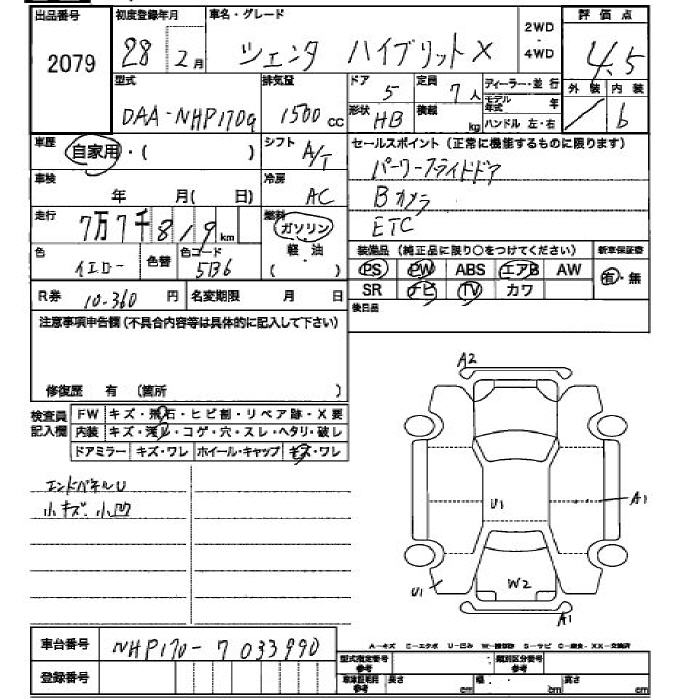 出品番号 初度登録年月 車名・グレード 2WD・4WD 評価点
2079 28 2月 シエンタ ハイブリットX 4.5
外装 内装 / 6
型式 排気量 ドア 5 定員 7人 ディーラー・並行
DAA-NHP170G 1500cc 形状 HB 積載 kg モデル年式 年
ハンドル 左・右
車歴 自家用・( ) シフト A/T セールスポイント(正常に機能するものに限ります)
パワースライドドア
車検 年 月( 日) 冷房 AC Bカメラ
走行 7万7千819km 燃料 ガソリン ETC
軽・油
( )
色 イエロー 色替 色コード 5B6 装備品(純正品に限り○をつけてください) 新車保証書
PS PW ABS エアB AW 有・無
SR ナビ TV カワ
R券 10.360円 名変期限 月 日 後日品
注意事項申告欄(不具合内容等は具体的に記入して下さい)
修復歴 有 (箇所 )
検査員記入欄 FW キズ・飛石・ヒビ割・リペア跡・X要
内装 キズ・汚レ・コゲ・穴・スレ・ヘタリ・破レ
ドアミラー キズ・ワレ ホイール・キャップ キズ・ワレ
エンドパネルU
小キズ.小凹
A2
U1 A1
W2
U1
A1
車台番号 NHP170-7033990
A-キズ E-エクボ U-凹み
登録番号 型式指定番号 参考 類別区分番号 参考
車庫証明用 参考 長さ cm 幅 cm 高さ cm